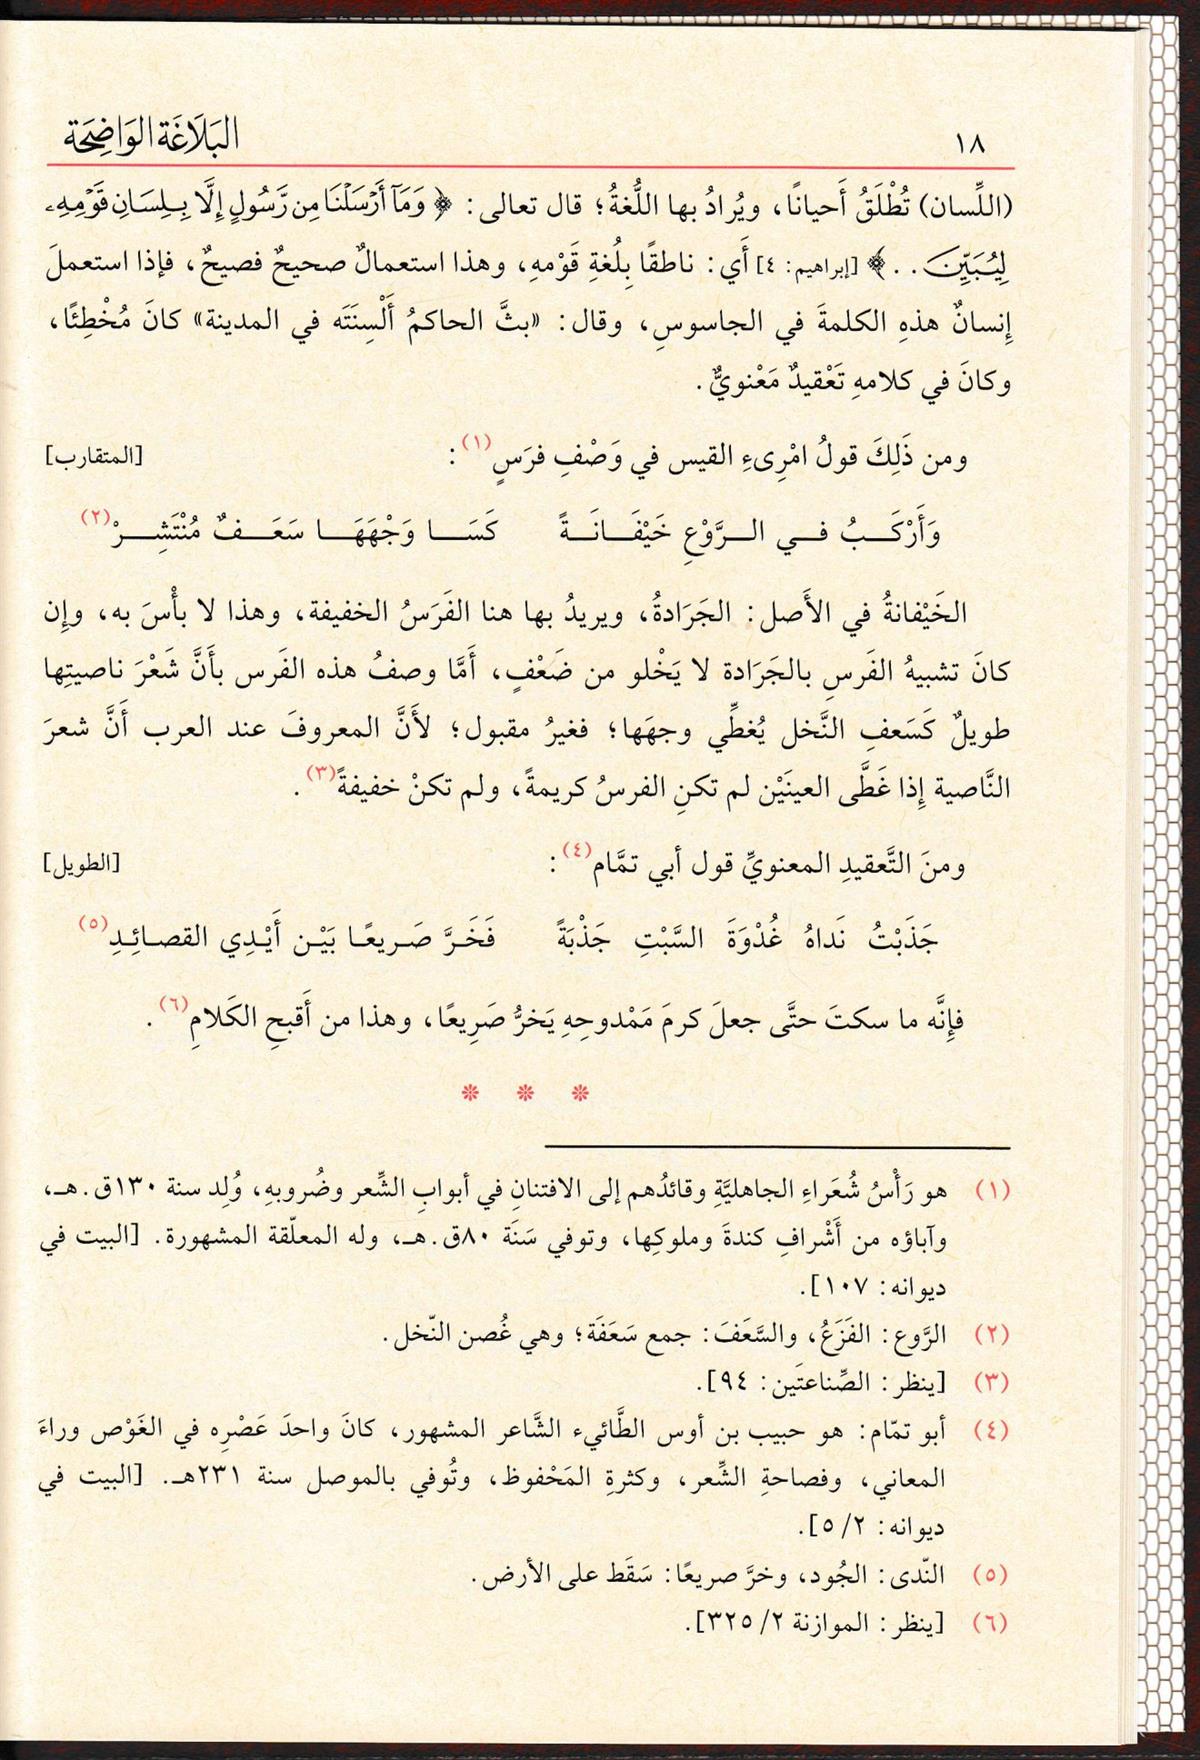 ١٨
البَلَاغَة الوَاضِحَة
(اللِّسان) تُطْلَقُ أَحيانًا، ويُرادُ بها اللُّغةُ؛ قال تعالى: ﴿وَمَآ أَرۡسَلۡنَا مِن رَّسُولٍ إِلَّا بِلِسَانِ قَوۡمِهِۦ
لِيُبَيِّنَ..﴾ [إبراهيم: ٤] أَي: ناطقًا بِلُغةِ قَوْمهِ، وهذا استعمالٌ صحيحٌ فصيحٌ، فإذا استعملَ
إِنسانٌ هذهِ الكلمةَ في الجاسوسِ، وقال: «بثَّ الحاكمُ أَلْسِنَتَه في المدينة» كانَ مُخْطِئًا،
وكانَ في كلامهِ تَعْقيدٌ مَعْنويٌّ.
ومن ذَلِكَ قولُ امْرِىءِ القيس في وَصْفِ فرَسٍ(١): [المتقارب]
وَأَرْكَبُ في الرَّوْعِ خَيْفَانَةً كَسَا وَجْهَهَا سَعَفٌ مُنْتَشِرْ(٢)
الخَيْفانةُ في الأَصل: الجَرَادةُ، ويريدُ بها هنا الفَرَسُ الخفيفة، وهذا لا بأْسَ به، وإِن
كانَ تشبيهُ الفَرسِ بالجَرَادة لا يَخْلو من ضَعْفٍ، أَمَّا وصفُ هذه الفَرس بأَنَّ شَعْرَ ناصيتِها
طويلٌ كَسَعفِ النَّخل يُغطِّي وجهَها؛ فغيرُ مقبول؛ لأَنَّ المعروفَ عند العرب أَنَّ شعرَ
النَّاصية إِذا غَطَّى العينَيْن لم تكنِ الفرسُ كريمةً، ولم تكنْ خفيفةً(٣).
ومنَ التَّعقيدِ المعنويِّ قول أبي تمَّام(٤): [الطويل]
جَذَبْتُ نَداهُ غُدْوَةَ السَّبْتِ جَذْبَةً فَخَرَّ صَريعًا بَيْن أَيْدِي القصائِدِ(٥)
فإِنَّه ما سكتَ حتَّى جعلَ كرمَ مَمْدوحِهِ يَخرُّ صَرِيعًا، وهذا من أَقبحِ الكَلامِ(٦).
* * *
(١) هو رَأْسُ شُعَراءِ الجاهليَّةِ وقائدُهم إلى الافتنانِ في أبوابِ الشِّعر وضُروبهِ، وُلِد سنة ١٣٠ق.هـ،
وآباؤه من أَشْرافِ كندةَ وملوكِها، وتوفي سَنَة ٨٠ق.هـ، وله المعلّقة المشهورة. [البيت في
ديوانه: ١٠٧].
(٢) الرَّوع: الفَزَعُ، والسَّعَفَ: جمع سَعَفَة؛ وهي غُصن النّخل.
(٣) [ينظر: الصِّناعتَين: ٩٤].
(٤) أبو تمّام: هو حبيب بن أوس الطَّائيء الشَّاعر المشهور، كانَ واحدَ عَصْرِه في الغَوْص وراءَ
المعاني، وفصاحةِ الشِّعر، وكثرةِ المَحْفوظ، وتُوفي بالموصل سنة ٢٣١هـ. [البيت في
ديوانه: ٥/٢].
(٥) النّدى: الجُود، وخرَّ صريعًا: سَقَط على الأرض.
(٦) [ينظر: الموازنة ٣٢٥/٢].